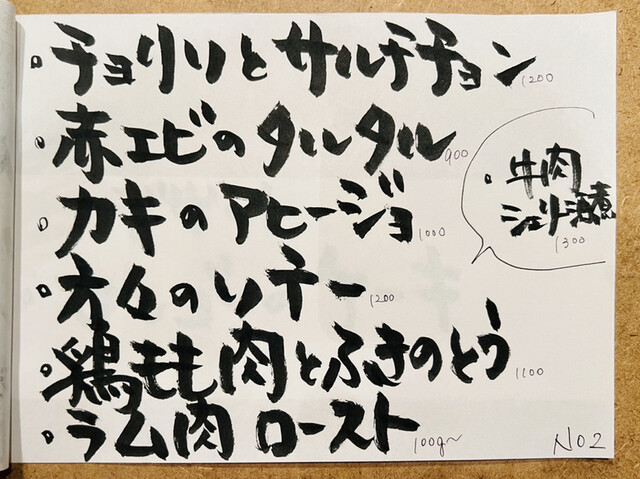 チョリソとサルチチョン 1200
赤エビのタルタル 900
カキのアヒージョ 1000
方々のソテー 1200
鶏もも肉とふきのとう 1100
ラム肉ロースト 100g~
牛肉
シェリー酒煮
1300
NO2